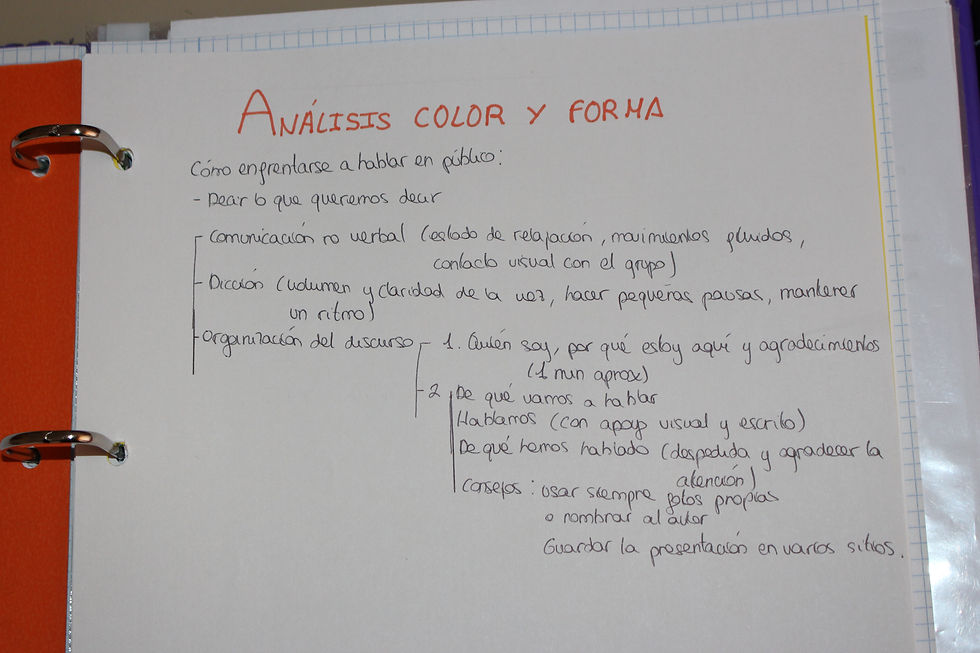 ANÁLISIS COLOR Y FORMA
Cómo enfrentarse a hablar en público:
- Decir lo que queremos decir
- Comunicación no verbal (estado de relajación, movimientos fluidos,
contacto visual con el grupo)
- Dicción (volumen y claridad de la voz, hacer pequeñas pausas, mantener
un ritmo)
- Organización del discurso - 1. Quién soy, por qué estoy aquí y agradecimientos
(1 min aprox)
- 2 De qué vamos a hablar
Hablamos (con apoyo visual y escrito)
De qué hemos hablado (despedida y agradecer la
atención)
Consejos: usar siempre fotos propias
o nombrar al autor
Guardar la presentación en varios sitios.